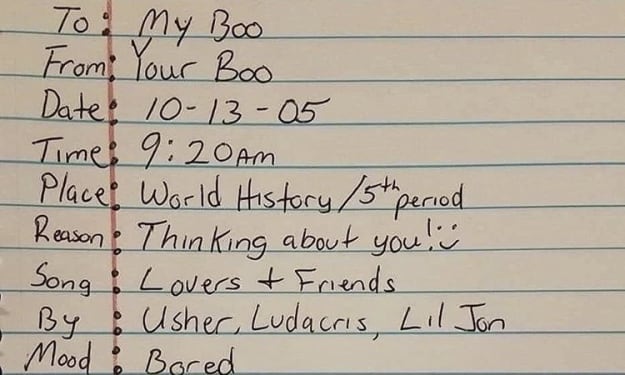 To: My Boo
From: Your Boo
Date: 10-13-05
Time: 9:20AM
Place: World History/5th period
Reason: Thinking about you! :)
Song: Lovers + Friends
By: Usher, Ludacris, Lil Jon
Mood: Bored